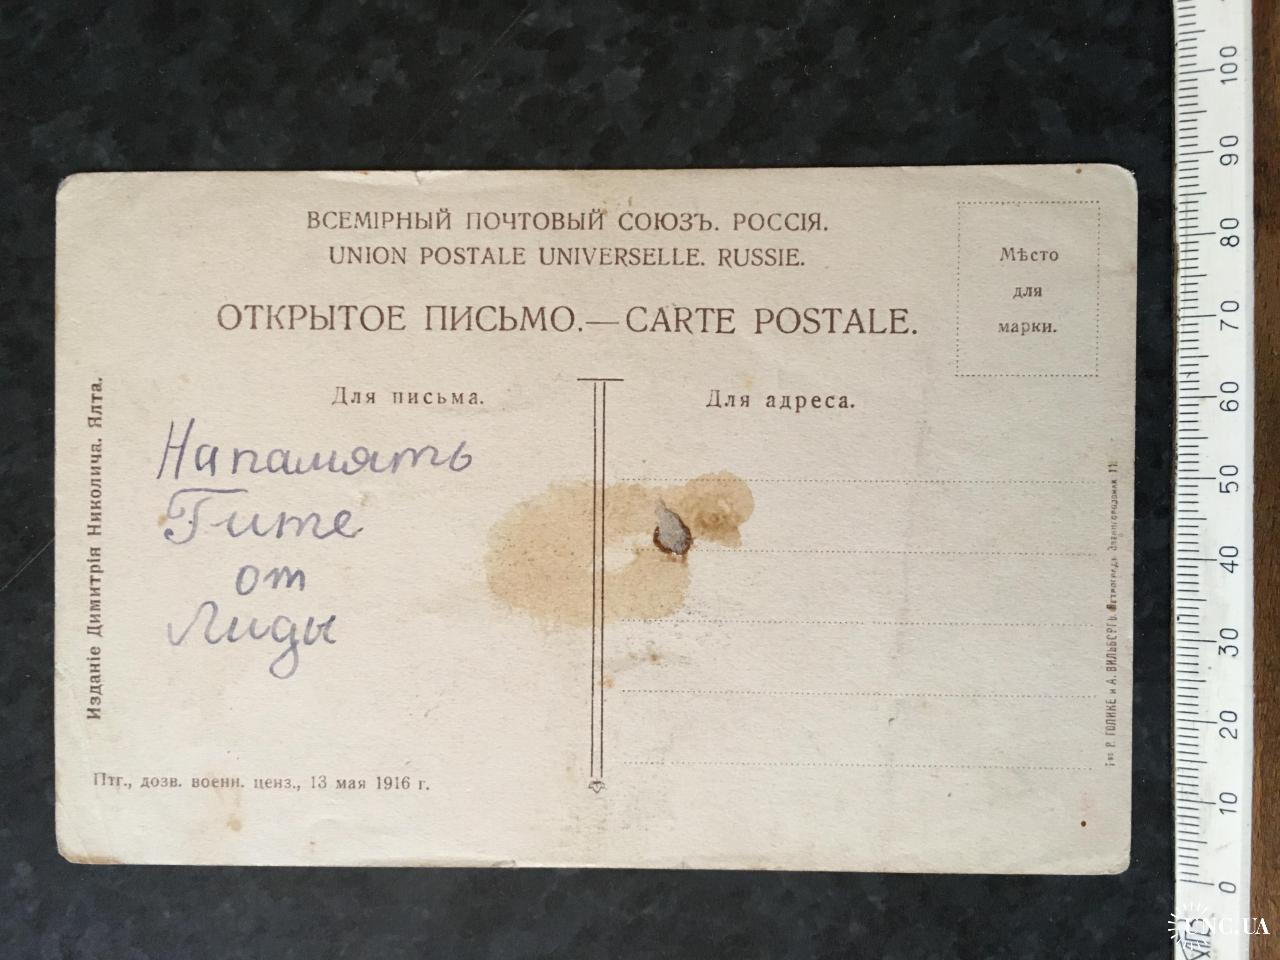 ВСЕМІРНЫЙ ПОЧТОВЫЙ СОЮЗЪ. РОССІЯ.
UNION POSTALE UNIVERSELLE. RUSSIE.
ОТКРЫТОЕ ПИСЬМО.—CARTE POSTALE.
Мѣсто
для
марки.
Для письма.
Для адреса.
На память
Гите
от
Лиды
Изданіе Димитрія Николича. Ялта.
Птг., дозв. военн. ценз., 13 мая 1916 г.
Тво Р. ГОЛИКЕ и А. ВИЛЬБОРГЪ. Петроградъ. Звенигородская 11.
100
90
80
70
60
50
40
30
20
10
0
UNC.UA